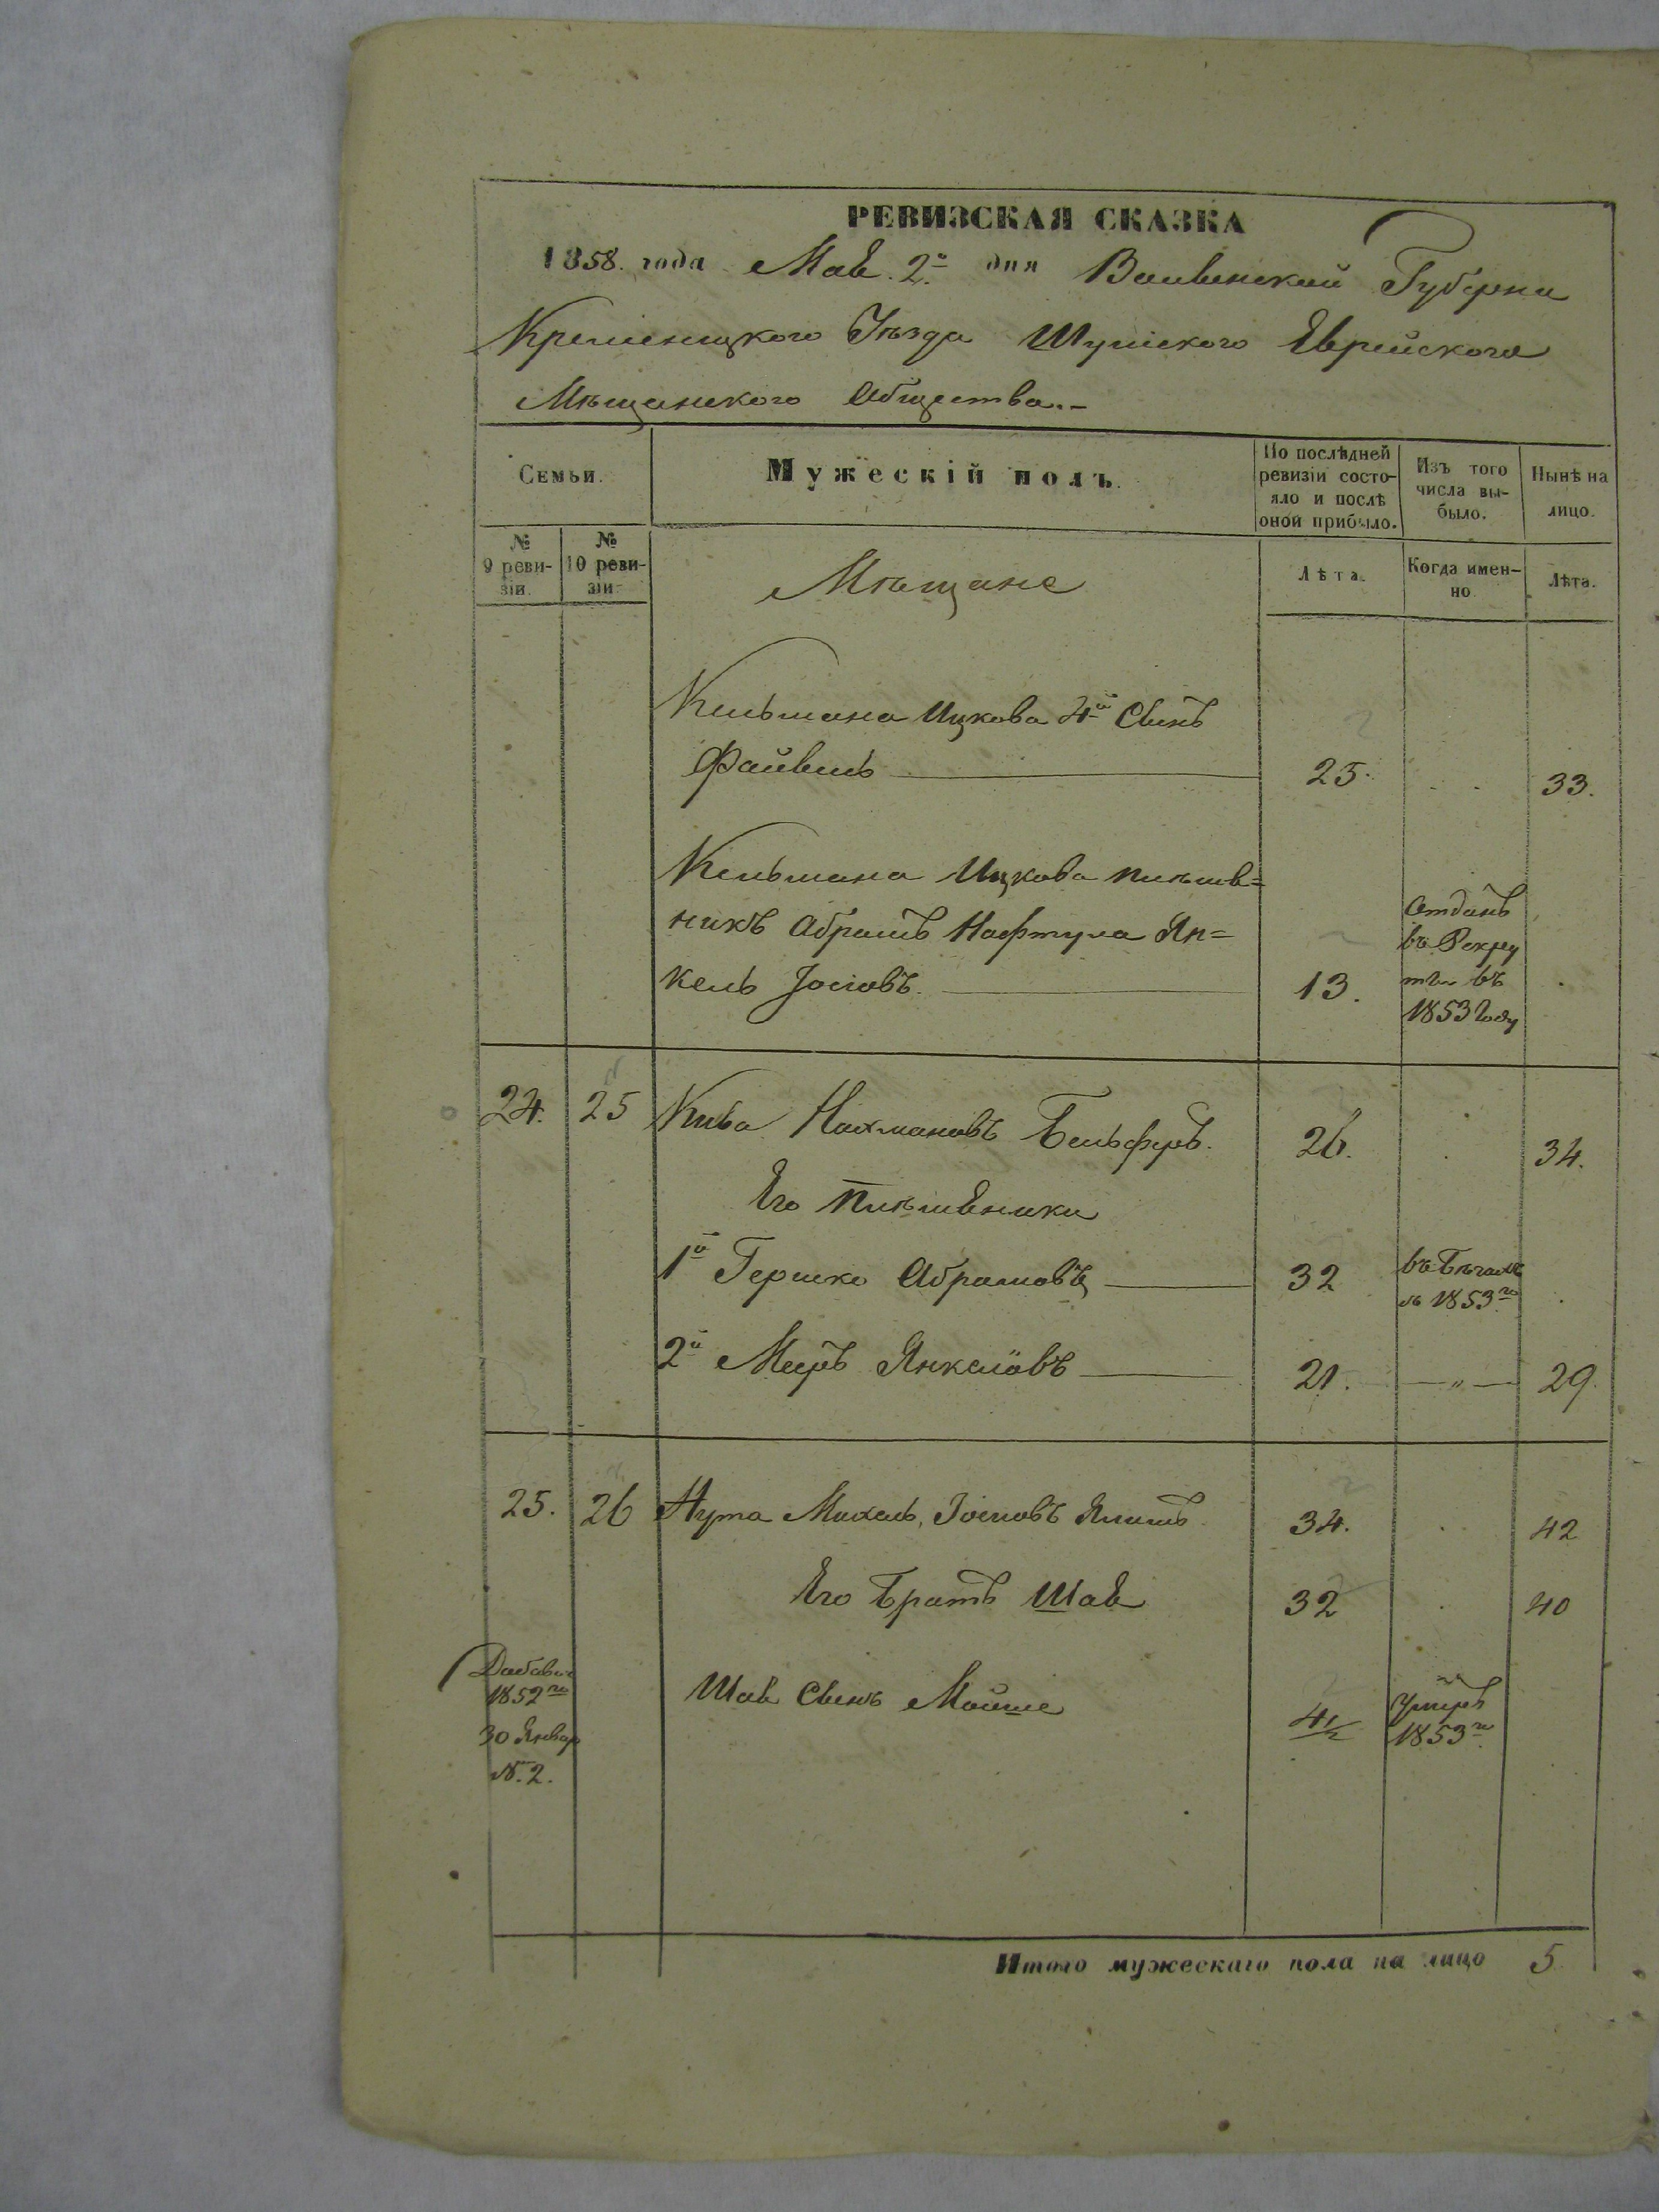 РЕВИЗСКАЯ СКАЗКА
1858. года Мая 2го дня Волынской Губерни
Кременецкого Уѣзда Шумского Еврейского
Мѣщанского Общества.-
Семьи. Мужескій полъ. По послѣдней ревизіи состо-яло и послѣ оной прибыло. Изъ того числа вы-было. Нынѣ на лицо.
№ 9 реви-зіи. № 10 реви-зіи. Мѣщане Лѣта. Когда имен-но Лѣта.
Кельмана Ицкова 4й Сынъ
Файвель 25. 33.
Кельмана Ицкова племя=
никъ Абрамъ Нафтула Ян=
кель Јосіовъ. 13.
Отданъ
въ Рекру
ты въ
1853 Году
24. 25 Кива Нахмановъ Бельферъ. 26. 34.
Его Племяники
1й Гершко Абрамовъ 32 въ Бѣгахъ
съ 1853го
2й Меиръ Янкелiовъ 21. — „ — 29.
25. 26 Нута Михель, Јосіовъ 34. 42
Его Братъ Шая 32 40
Добавл
1852го
30 Январ
№. 2.
Шаи Сынъ Мойше 4½ Умеръ
1853го
Итого мужескаго пола на лицо 5